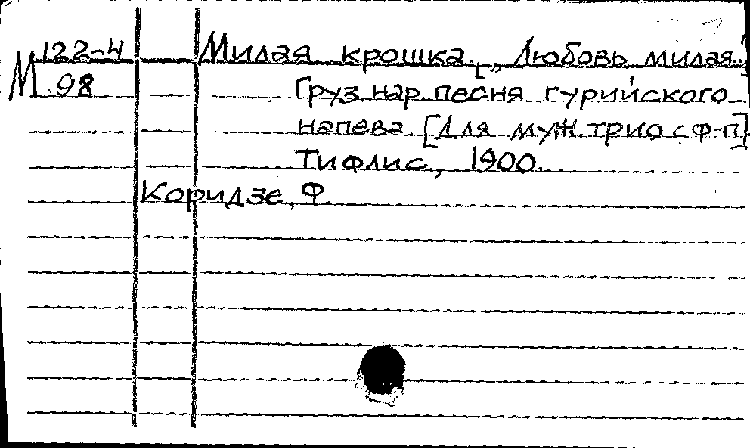 М 122-4 Милая крошка. [„Любовь милая"]
98 Груз. нар. песня гурийского
напева. [Для муж. трио с ф-п]
Тифлис, 1900.
Коридзе, Ф.